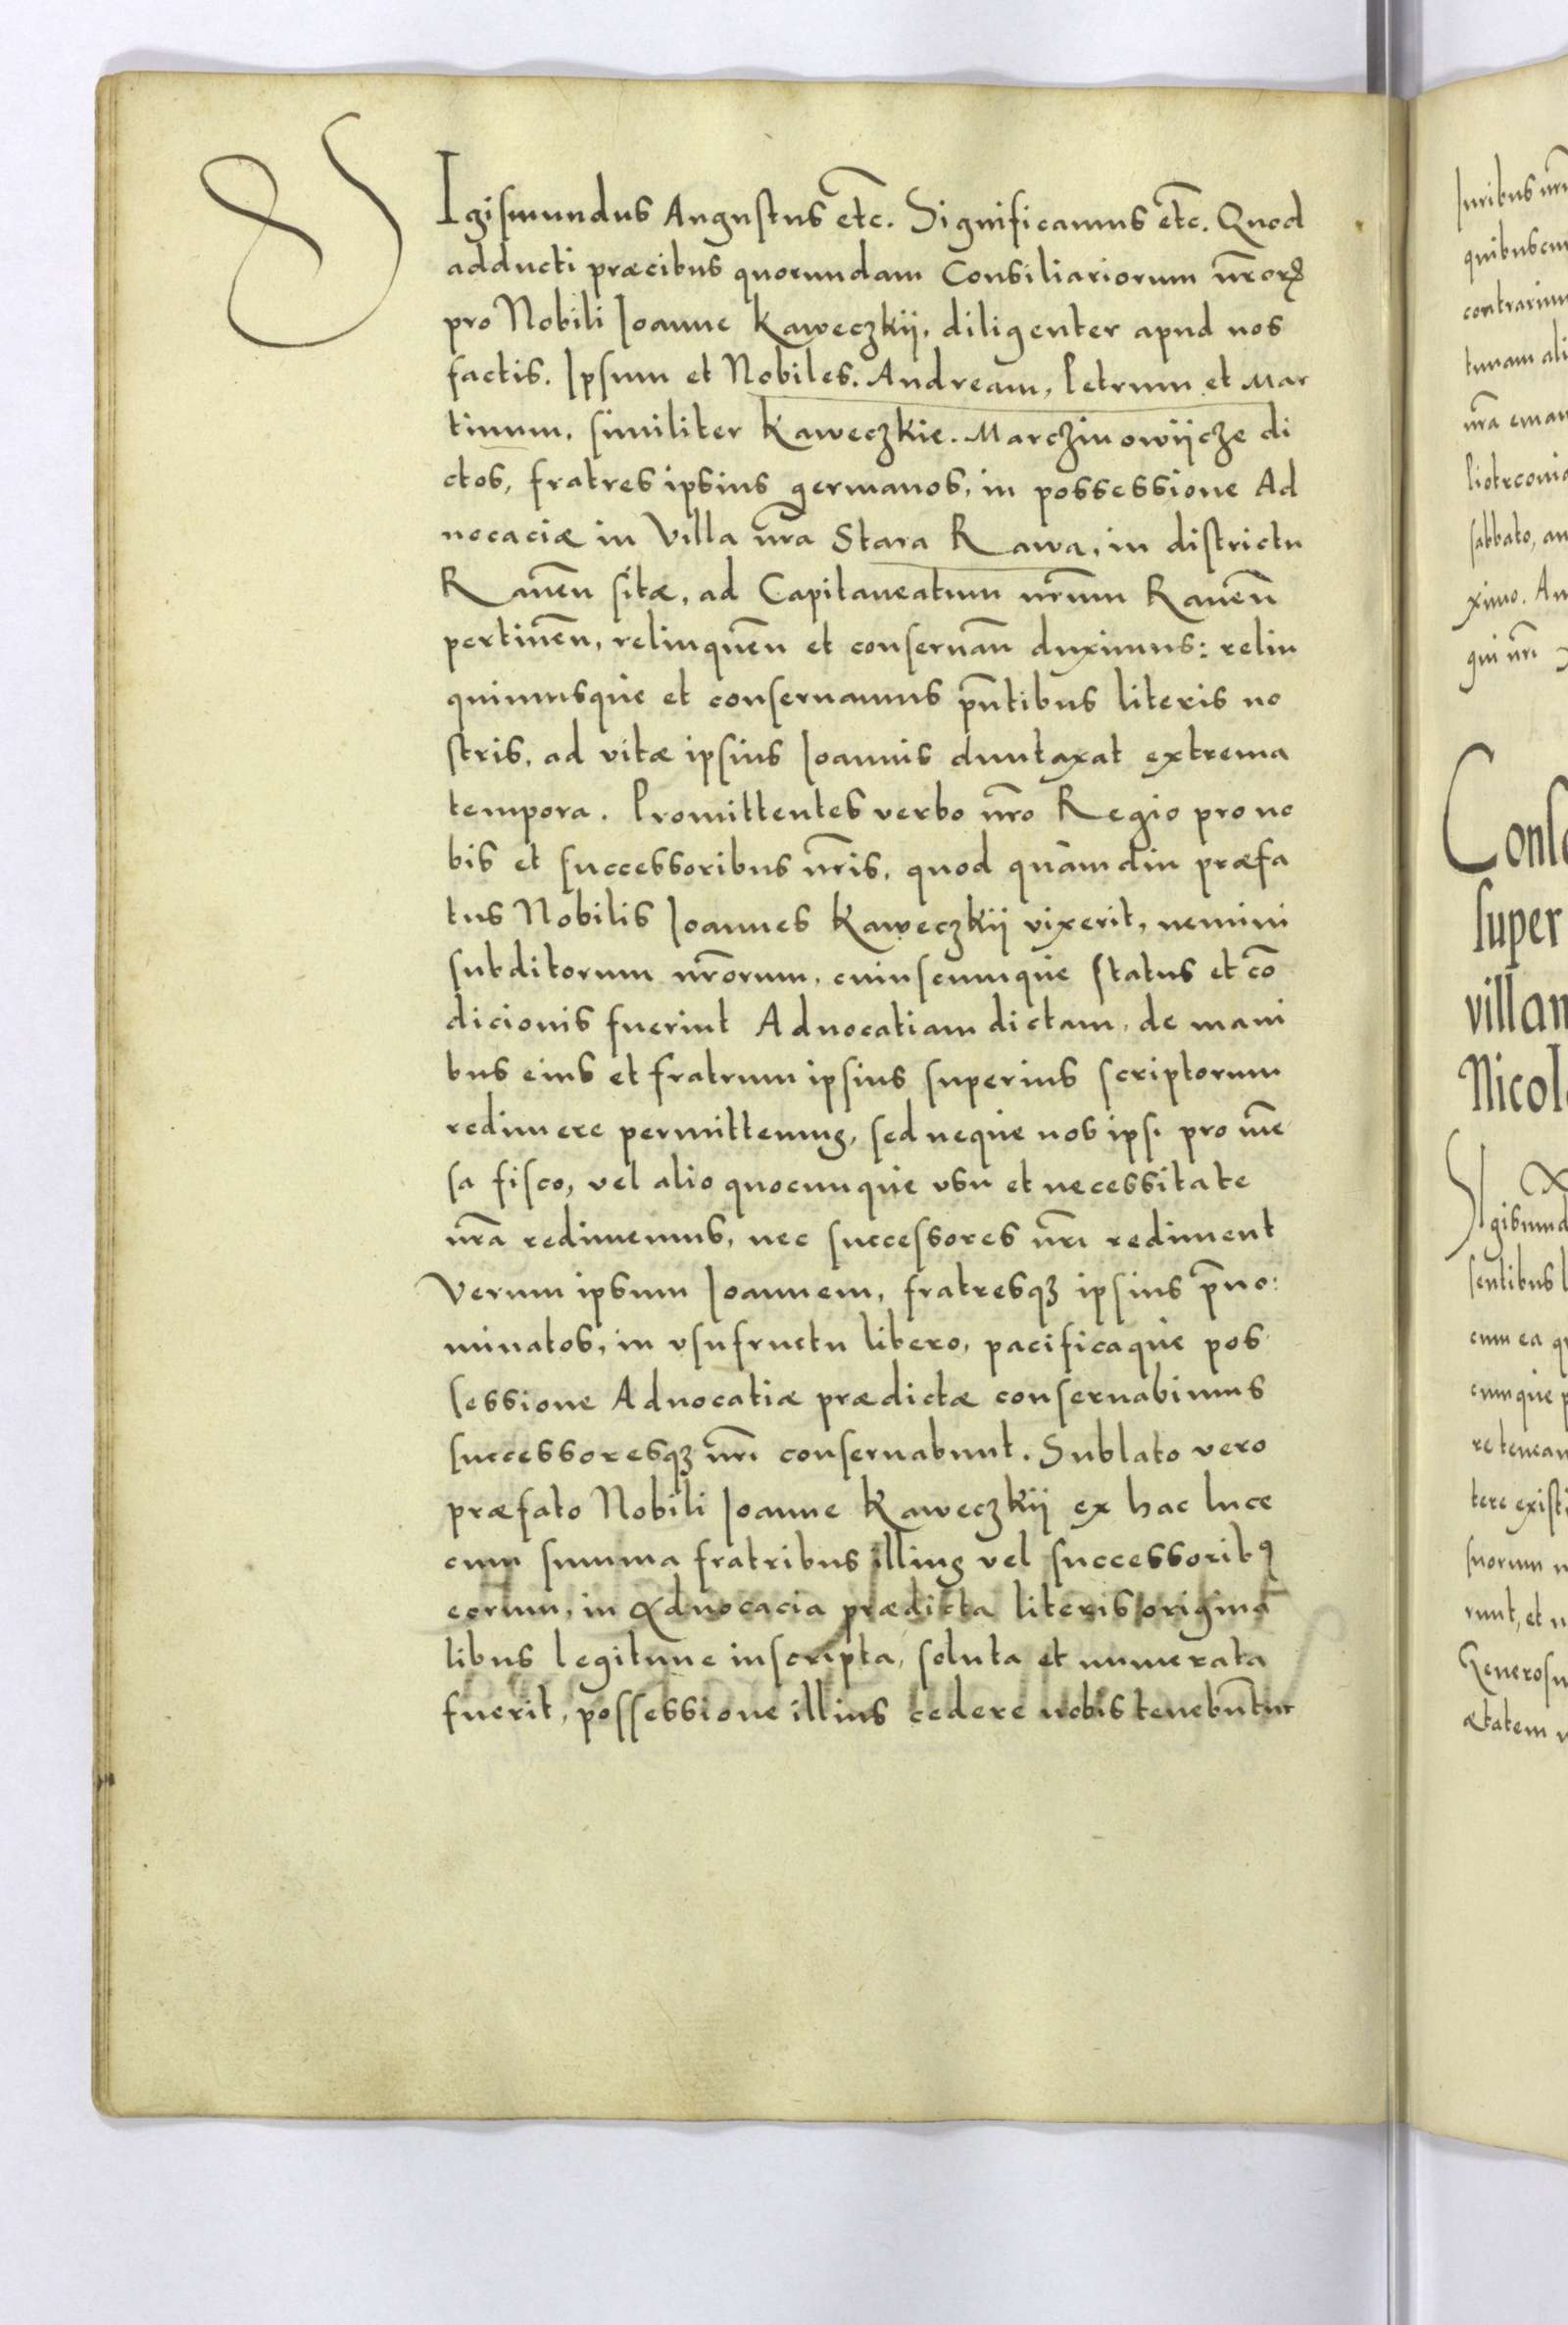 SIgismundus Augustus etc̃. Significamus etc̃. Quod
adducti præcibus quorundam Consiliariorum nr̃orꝝ
pro Nobili Ioanne Kaweczkij, diligenter apud nos
factis. Ipsum et Nobiles. Andream, Petrum et Mar
tinum, similiter Kaweczkie. Marczinowijcze di
ctos, fratres ipsius germanos, in possessione Ad
uocaciæ in Villa nr̃a Stara Rawa, in districtu
Rauen̄ sitæ, ad Capitaneatum nr̃um Rauen̄
pertinen̄, relinquen̄ et conseruan̄ duximus: relin
quimusque et conseruamus pn̄tibus literis no
stris, ad vitæ ipsius Ioannis duntaxat extrema
tempora. Promittentes verbo nr̃o Regio pro no
bis et successoribus nr̃is, quod quamdiu præfa
tus Nobilis Ioannes Kaweczkij vixerit, nemini
subditorum nr̃orum, cuiuscumque status et cō
dicionis fuerint Aduocatiam dictam, de mani
bus eius et fratrum ipsius superius scriptorum
redimere permittemus, sed neque nos ipsi pro mē
sa fisco, vel alio quocunque vsu et necessitate
nr̃a redimemus, nec successores nr̃i rediment
Verum ipsum Ioannem, fratresqꝫ ipsius p̄no:
minatos, in vsufructu libero, pacificaque pos
sessione Aduocatiæ prædictæ conseruabimus
successoresqꝫ nr̃i conseruabunt. Sublato vero
præfato Nobili Ioanne Kaweczkij ex hac luce
cum summa fratribus illius vel successoribꝰ
eorum, in Aduocacia prædicta literis origina
libus legitime inscripta, soluta et numerata
fuerit, possessione illius cedere nobis tenebuntur
Iuribus nr̃
quibuscun
contrarium
tunam ali
nr̃a eman
Piotrcoui
sabbato, an
ximo. An
qui nr̃i
Cons
super
villam
Nicol
SIgismund
sentibus l
cum ea q
cumque p
re tenean
tere existi
suorum n
runt, et n
Generosu
ætatem n